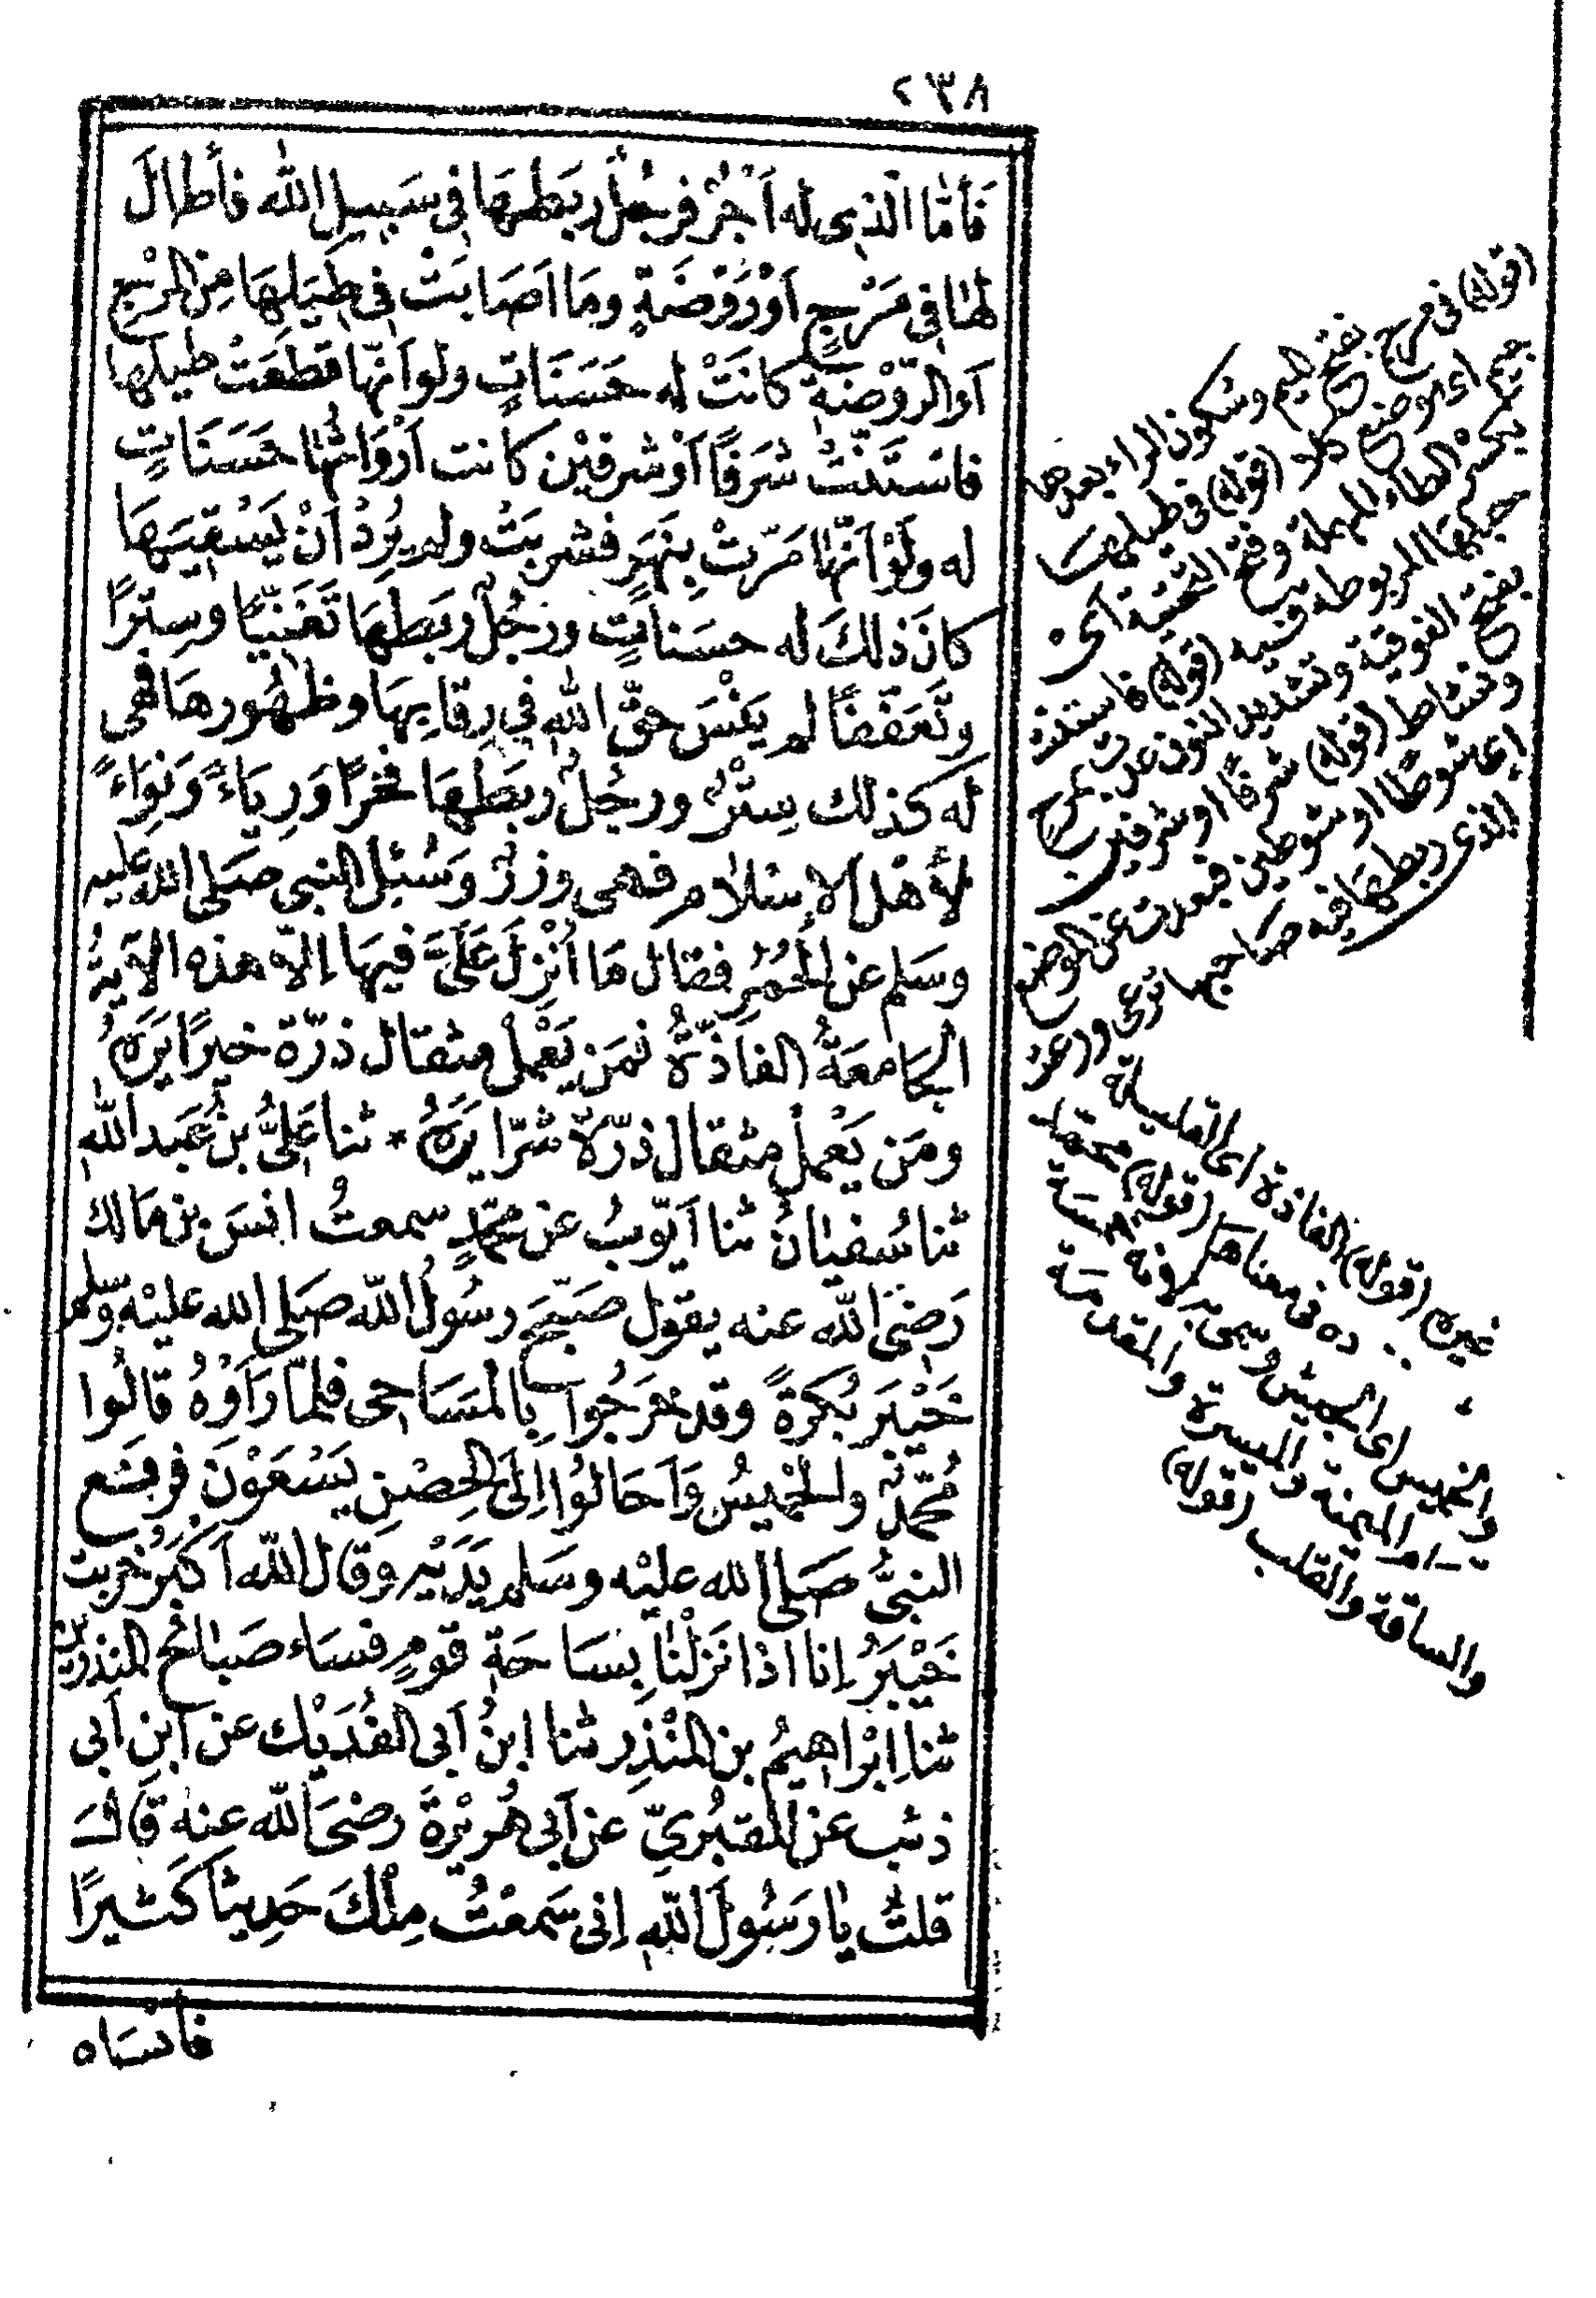 ٢٣٨
فَأَمّا الّذِى له اَجْرٌ فرجُلٌ ربَطَهَا فِى سَبِيلِ اللّٰه فأطالَ
لها فِى مَرْجٍ اَوْ رَوْضَةٍ ومَا اَصَابَتْ فِى طِيَلِهَا مِنَ المَرْجِ
اَوِ الرّوْضَةِ كانَتْ له حَسَنَاتٍ ولو اَنّها قطَعَتْ طيلَها
فاسْتَنَّتْ شرَفًا اَوْ شرفَيْن كانت اَرْوَاثُها حَسَنَاتٍ
له ولَوْ اَنّها مَرّتْ بِنهَرٍ فشربَتْ ولم يُرِدْ اَنْ يَسْقِيَهَا
كانَ ذلكَ له حسَناتٍ ورجُلٌ ربَطهَا تَغَنِّيًا وسِتْرًا
وتَعَفّفًا لم يَنْسَ حقَّ اللّٰهِ فِي رِقابِهَا وظُهُورهَا فَهِى
له كذلك سِتْرٌ ورجُلٌ ربَطهَا فخْرًا وَرِيَاءً وَنِوَاءً
لأهْلِ الإسْلامِ فهى وِزْرٌ وَسُئِلَ النبى صَلى اللّٰه عليه
وسَلم عنِ الحُمُرِ فقال مَا اُنْزِلَ عَلَىَّ فِيهَا إلاّ هذه الآيةُ
الجَامعَةُ الفَاذّةُ فمَن يَعْمَلْ مثقال ذرّة خيرًا يَرَهُ
ومَن يَعْمَلْ مثقال ذرّةٍ شرّا يَرَهُ * ثنا عَلِىُّ بنُ عَبد اللّٰه
ثنا سُفيانُ ثنا اَيّوبُ عن محمّدٍ سمعتُ انسَ بن مَالك
رَضِىَ اللّٰه عنه يقول صَبّحَ رسُولُ اللّٰه صَلى اللّٰه عليْه وسّلم
خَيْبَرَ بُكرَةً وقد خرَجُوا بِالمسَاحِى فلمّا رَاَوْهُ قالُوا
مُحَمّدٌ والخَمِيسُ وَاَحَالُوا اِلَى الحِصْنِ يَسْعَوْنَ فرفَع
النبىُّ صَلى اللّٰه عليْه وسَلم يَدَيْهِ وقال اللّٰه اَكبَرُ خربت
خَيْبَرُ اِنا اذا نَزَلْنا بِسَاحَةِ قومٍ فسَاء صَبَاحُ المنذرين
ثنا اِبْراهِيمُ بن المنْذِر ثنا ابنُ اَبى الفُدَيْك عن ابنِ اَبى
ذئب عن المقبُريِّ عن اَبى هُرَيْرةَ رضىَ اللّٰه عنه قَالَ
قلتُ يا رَسُولَ اللّٰهِ اِنى سَمعْتُ مِنْكَ حَدِيثًا كَثيرًا
فأنسَاه
(قوله) فى مرج بفتح الميم وسكون الراء بعدها
جيم اى موضع كلا (قوله) فى طيلها
بكسر الطاء المهملة وفتح التحتية اى
حبلها المربوطة فيه (قوله) فاستنت
بفتح الفوقية وتشديد النون عدت بمرح
ونشاط (قوله) شرفا او شرفين
اى شوطا او شوطين فبعدت عن الموضع
الذى ربطها فيه صاحبها ترعى ورعت
غيره (قوله) الفاذة اى القليلة
فى معناها (قوله)
والخميس اى الجيش وسمى به لانه خمسة
الميمنة والميسرة والمقدمة
والساقة والقلب (قوله)